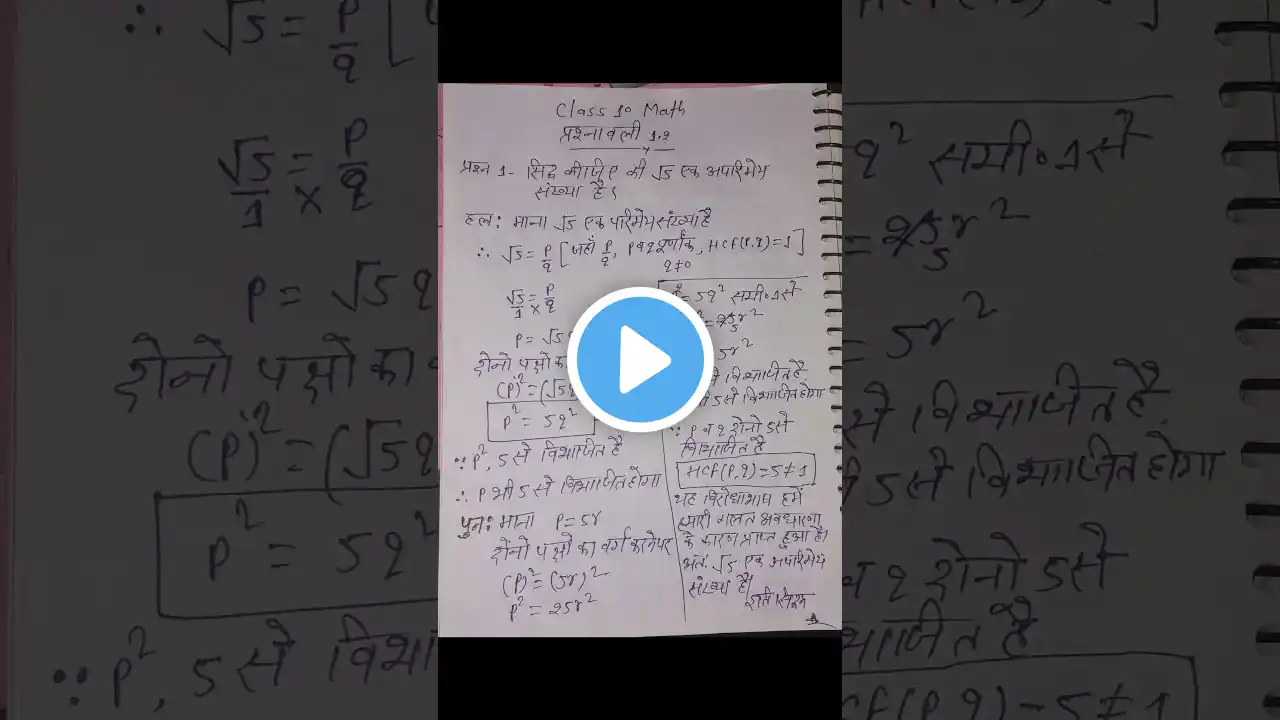 Class 10 Math
प्रश्नावली 1.2
प्रश्न 1- सिद्ध कीजिए की √5 एक अपरिमेय
संख्या है।
हल: माना √5 एक परिमेय संख्या है
∴ √5 = p/q [जहाँ p/q, p व q पूर्णांक, HCF(p,q)=1]
q≠0
√5/1 × = p/q
p = √5
दोनो पक्षो का
(p)² = (√5q
p² = 5q²
∵ p², 5 से विभाजित है
∴ p भी 5 से विभाजित होगा
पुन: माना p = 5r
दोनो पक्षो का वर्ग करने पर
(p)² = (5r)²
p² = 25r²
= 5q² समी॰ 1 से
= 25r²
5
5r²
से विभाजित है
5 से विभाजित होगा
∵ p व q दोनो 5 से
विभाजित है
HCF(p,q) = 5 ≠ 1
यह विरोधाभाष हमें
हमारी गलत अवधारणा
के कारण प्राप्त हुआ है।
अत: √5 एक अपरिमेय
संख्या है।
इति सिद्धम